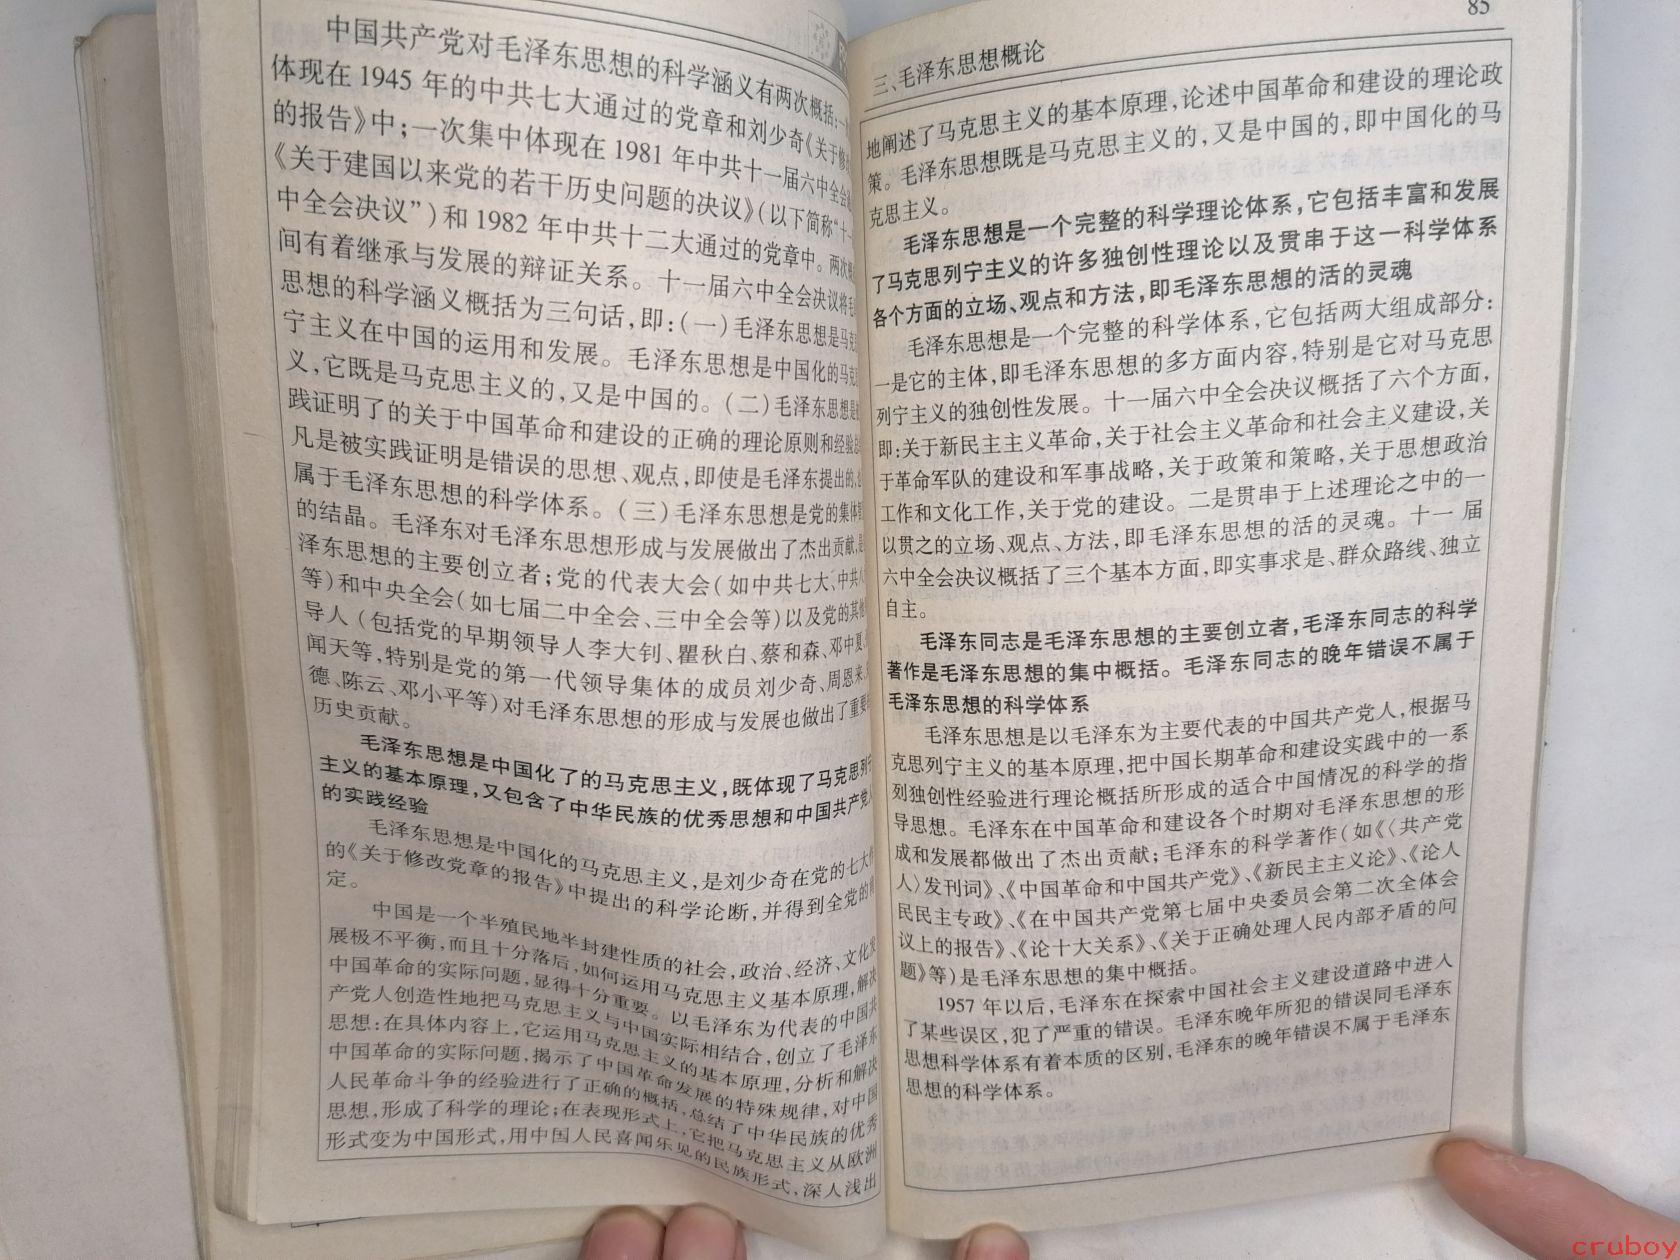 中国共产党对毛泽东思想的科学涵义有两次概括:一
体现在1945年的中共七大通过的党章和刘少奇《关于修
的报告》中;一次集中体现在1981年中共十一届六中全会
《关于建国以来党的若干历史问题的决议》(以下简称“十一
中全会决议”)和1982年中共十二大通过的党章中。两次
间有着继承与发展的辩证关系。十一届六中全会决议将毛
思想的科学涵义概括为三句话,即:(一)毛泽东思想是马克
宁主义在中国的运用和发展。毛泽东思想是中国化的马克
义,它既是马克思主义的,又是中国的。(二)毛泽东思想是
践证明了的关于中国革命和建设的正确的理论原则和经验
凡是被实践证明是错误的思想、观点,即使是毛泽东提出的,
属于毛泽东思想的科学体系。(三)毛泽东思想是党的集体
的结晶。毛泽东对毛泽东思想形成与发展做出了杰出贡献,
泽东思想的主要创立者;党的代表大会(如中共七大、中共八
等)和中央全会(如七届二中全会、三中全会等)以及党的其他
导人(包括党的早期领导人李大钊、瞿秋白、蔡和森、邓中夏、
闻天等,特别是党的第一代领导集体的成员刘少奇、周恩来、
德、陈云、邓小平等)对毛泽东思想的形成与发展也做出了重要
历史贡献。
毛泽东思想是中国化了的马克思主义,既体现了马克思列宁
主义的基本原理,又包含了中华民族的优秀思想和中国共产党人
的实践经验
毛泽东思想是中国化的马克思主义,是刘少奇在党的七大作
的《关于修改党章的报告》中提出的科学论断,并得到全党的
定。
中国是一个半殖民地半封建性质的社会,政治、经济、文化发
展极不平衡,而且十分落后,如何运用马克思主义基本原理,解决
中国革命的实际问题,显得十分重要。以毛泽东为代表的中国共
产党人创造性地把马克思主义与中国实际相结合,创立了毛泽东
思想:在具体内容上,它运用马克思主义的基本原理,分析和解决
中国革命的实际问题,揭示了中国革命发展的特殊规律,对中国
人民革命斗争的经验进行了正确的概括,总结了中华民族的优秀
思想,形成了科学的理论;在表现形式上,它把马克思主义从欧洲
形式变为中国形式,用中国人民喜闻乐见的民族形式,深入浅出
85
三、毛泽东思想概论
地阐述了马克思主义的基本原理,论述中国革命和建设的理论政
策。毛泽东思想既是马克思主义的,又是中国的,即中国化的马
克思主义。
毛泽东思想是一个完整的科学理论体系,它包括丰富和发展
了马克思列宁主义的许多独创性理论以及贯串于这一科学体系
各个方面的立场、观点和方法,即毛泽东思想的活的灵魂
毛泽东思想是一个完整的科学体系,它包括两大组成部分:
一是它的主体,即毛泽东思想的多方面内容,特别是它对马克思
列宁主义的独创性发展。十一届六中全会决议概括了六个方面,
即:关于新民主主义革命,关于社会主义革命和社会主义建设,关
于革命军队的建设和军事战略,关于政策和策略,关于思想政治
工作和文化工作,关于党的建设。二是贯串于上述理论之中的一
以贯之的立场、观点、方法,即毛泽东思想的活的灵魂。十一届
六中全会决议概括了三个基本方面,即实事求是、群众路线、独立
自主。
毛泽东同志是毛泽东思想的主要创立者,毛泽东同志的科学
著作是毛泽东思想的集中概括。毛泽东同志的晚年错误不属于
毛泽东思想的科学体系
毛泽东思想是以毛泽东为主要代表的中国共产党人,根据马
克思列宁主义的基本原理,把中国长期革命和建设实践中的一系
列独创性经验进行理论概括所形成的适合中国情况的科学的指
导思想。毛泽东在中国革命和建设各个时期对毛泽东思想的形
成和发展都做出了杰出贡献;毛泽东的科学著作(如《〈共产党
人〉发刊词》、《中国革命和中国共产党》、《新民主主义论》、《论人
民民主专政》、《在中国共产党第七届中央委员会第二次全体会
议上的报告》、《论十大关系》、《关于正确处理人民内部矛盾的问
题》等)是毛泽东思想的集中概括。
1957年以后,毛泽东在探索中国社会主义建设道路中进入
了某些误区,犯了严重的错误。毛泽东晚年所犯的错误同毛泽东
思想科学体系有着本质的区别,毛泽东的晚年错误不属于毛泽东
思想的科学体系。
cruboy